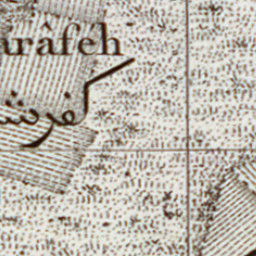 arâfeh
كفر